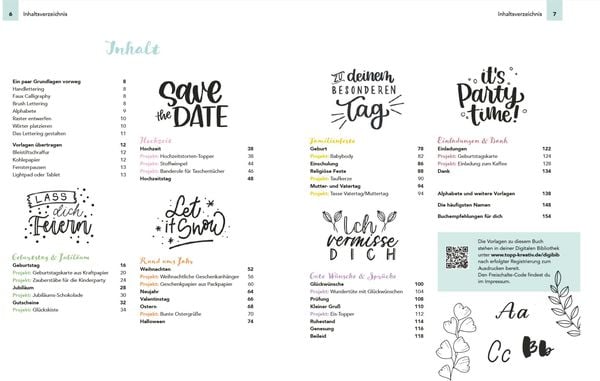 6 Inhaltsverzeichnis
Inhaltsverzeichnis 7
Inhalt
Ein paar Grundlagen vorweg 8
Handlettering 8
Faux Calligraphy 8
Brush Lettering 8
Alphabete 9
Raster entwerfen 10
Wörter platzieren 10
Das Lettering gestalten 11
Vorlagen übertragen 12
Bleistiftschraffur 12
Kohlepapier 12
Fensterpausen 13
Lightpad oder Tablet 13
LASS
dich
Feiern
Geburtstag & Jubiläum
Geburtstag 16
Projekt: Geburtstagskarte aus Kraftpapier 20
Projekt: Zauberstäbe für die Kinderparty 24
Jubiläum 28
Projekt: Jubiläums-Schokolade 30
Gutscheine 32
Projekt: Glückskiste 34
Save
the DATE
Hochzeit
Hochzeit 38
Projekt: Hochzeitstorten-Topper 40
Projekt: Stoffwimpel 44
Projekt: Banderole für Taschentücher 46
Hochzeitstag 48
Let
it Snow
Rund ums Jahr
Weihnachten 52
Projekt: Weihnachtliche Geschenkanhänger 56
Projekt: Geschenkpapier aus Packpapier 60
Neujahr 64
Valentinstag 66
Ostern 68
Projekt: Bunte Ostergrüße 70
Halloween 74
ZU deinem
BESONDEREN
Tag
Familienfeste
Geburt 78
Projekt: Babybody 82
Einschulung 86
Religiöse Feste 88
Projekt: Taufkerze 90
Mutter- und Vatertag 94
Projekt: Tasse Vatertag/Muttertag 96
Ich
vermisse
DICH
Gute Wünsche & Sprüche
Glückwünsche 100
Projekt: Wundertüte mit Glückwünschen 104
Prüfung 108
Kleiner Gruß 110
Projekt: Eis-Topper 112
Ruhestand 114
Genesung 116
Beileid 118
it's
Party
time!
Einladungen & Dank
Einladungen 122
Projekt: Geburtstagskarte 124
Projekt: Einladung zum Kaffee 128
Dank 134
Alphabete und weitere Vorlagen 138
Die häufigsten Namen 148
Buchempfehlungen für dich 154
Die Vorlagen zu diesem Buch
stehen in deiner Digitalen Bibliothek
unter www.topp-kreativ.de/digibib
nach erfolgter Registrierung zum
Ausdrucken bereit.
Den Freischalte-Code findest du
im Impressum.
Aa
Cc Bb